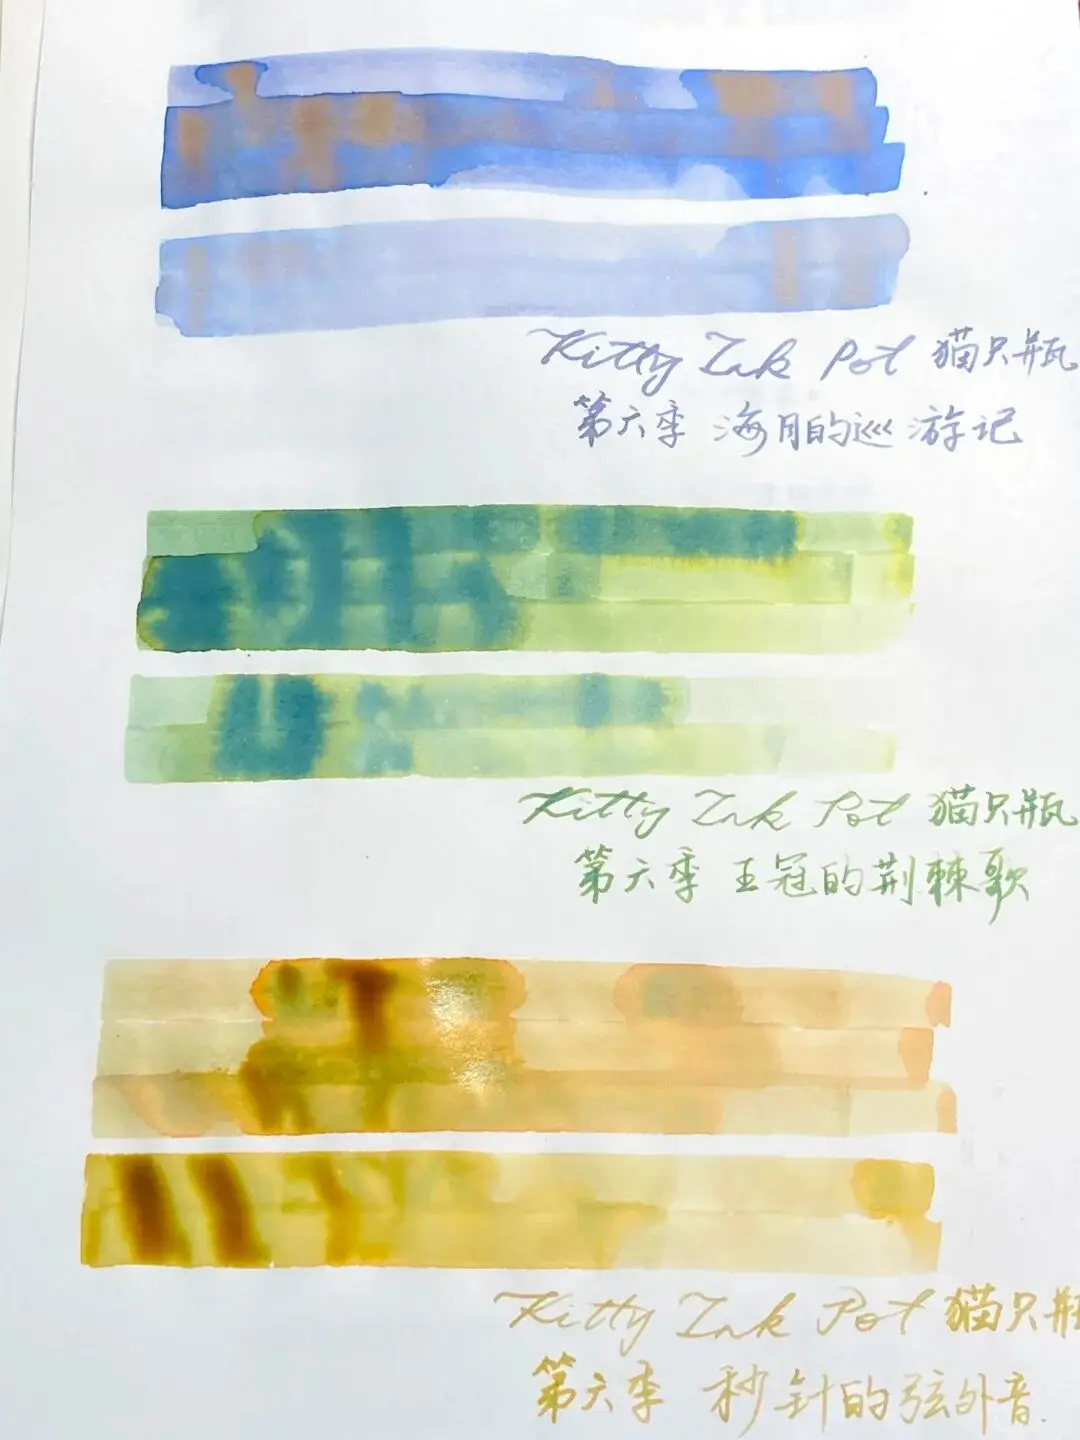 Kitty Ink Pot 猫只瓶
第六季 海月的巡游记
Kitty Ink Pot 猫只瓶
第六季 王冠的荆棘歌
Kitty Ink Pot 猫只瓶
第六季 秒针的弦外音